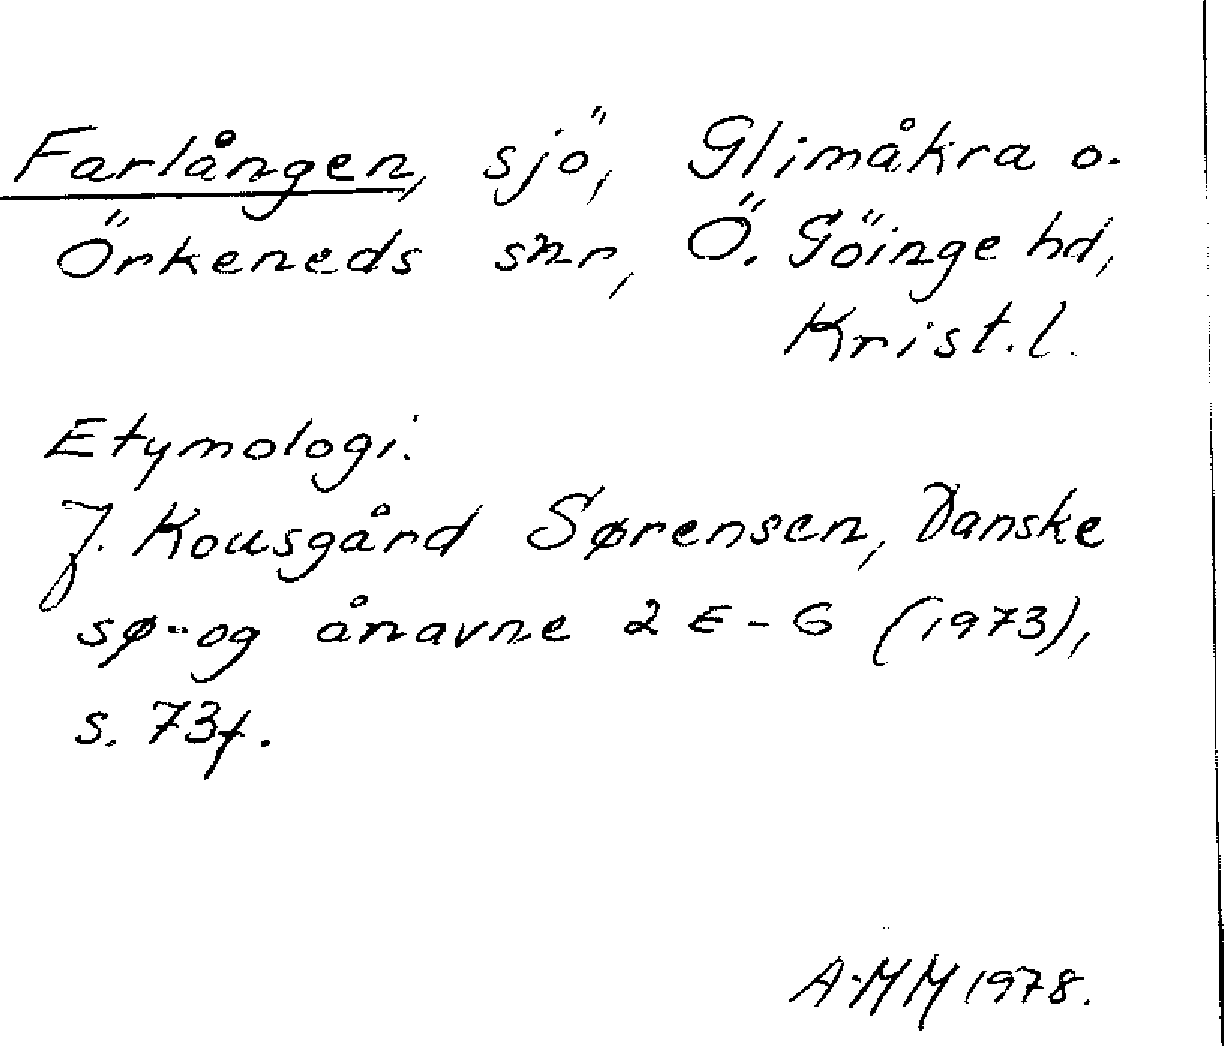 Farlången, sjö, Glimåkra o.
Örkeneds snr, Ö. Göinge hd,
Krist. l.
Etymologi:
J. Kousgård Sørensen, Danske
sø- og ånavne 2 E - G (1973),
s. 73f.
A-MM 1978.